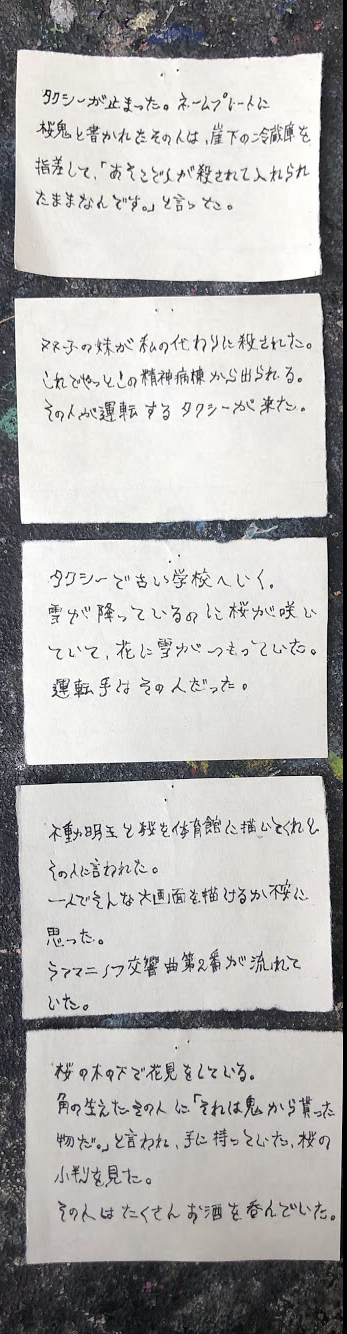 タクシーが止まった。ネームプレートに
桜鬼と書かれたその人は、崖下の冷蔵庫を
指差して、「あそこで人が殺されて入れられ
たままなんです。」と言った。
の妹が私の代わりに殺された。
これでやっとこの精神病棟から出られる。
その人が運転するタクシーが来た。
タクシーで古い学校へいく。
雪が降っているのに桜が咲い
ていて、花に雪がつもっていた。
運転手はその人だった。
不動明王と桜を体育館に描いてくれと
その人に言われた。
一人でそんな大画面を描けるか不安に
思った。
ラフマニノフ交響曲第2番が流れて
いた。
桜の木の下で花見をしている。
角の生えたその人に「それは鬼から貰った
物だ。」と言われ、手に持っていた、桜の
小判を見た。
その人はたくさんお酒を呑んでいた。